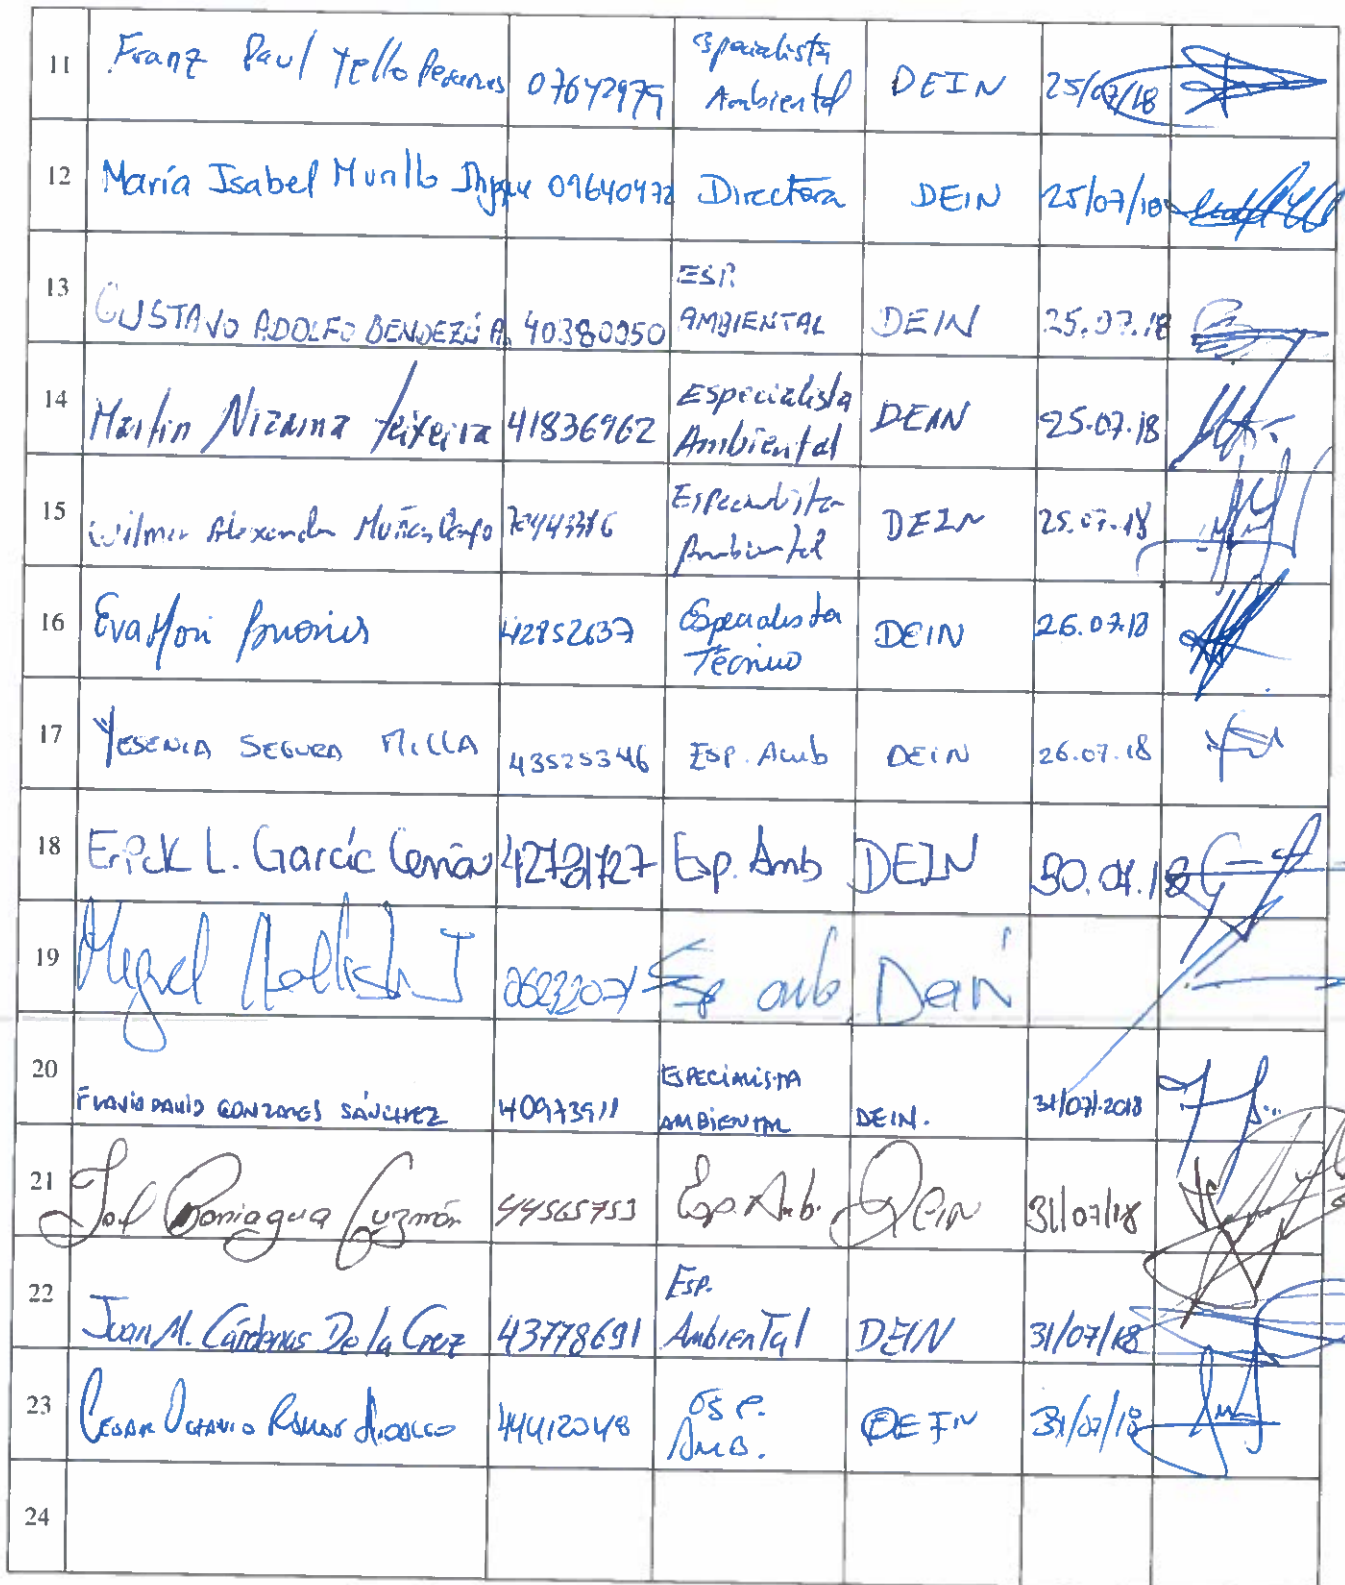 11 Franz Paul Tello 07642979 Especialista Ambiental DEIN 25/07/18
12 María Isabel Murillo 09640472 Directora DEIN 25/07/18
13 GUSTAVO ADOLFO BENDEZÚ A. 40380050 ESP. AMBIENTAL DEIN 25.07.18
14 Martin Nizama Teixeira 41836962 Especialista Ambiental DEIN 25.07.18
15 Wilmer Alexander Muñoz 70443316 Especialista Ambiental DEIN 25.07.18
16 Eva Mori 42852637 Especialista Técnico DEIN 26.07.18
17 YESENIA SEGURA MILLA 43525346 Esp. Amb DEIN 26.07.18
18 Erick L. García Esp. Amb DEIN 30.07.18
19 Miguel Esp amb Dein
20 FLAVIO DAVID GONZALES SÁNCHEZ 40973911 ESPECIALISTA AMBIENTAL DEIN. 31/07/2018
21 Paniagua Guzmán 44565753 Esp. Amb. Dein 31/07/18
22 Juan M. Cárdenas De la Cruz 43778691 Esp. Ambiental DEIN 31/07/18
23 CESAR OCTAVIO RAMOS HIDALGO 44412048 ESP. AMB. DEIN 31/07/18
24